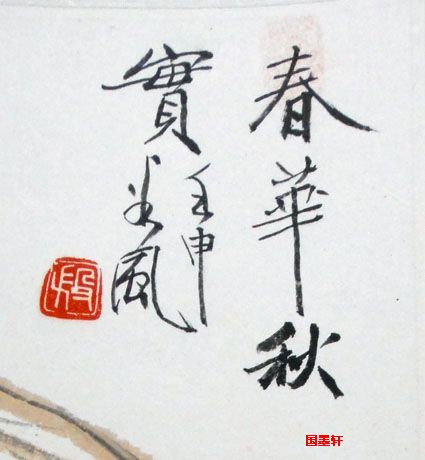 春華秋
實
壬申
風
殷
国墨轩